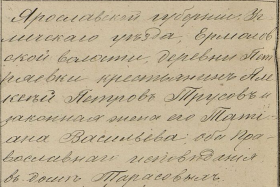 Ярославской губернии, Уг
личскаго уѣзда, Ермолов
ской волости, деревни Пет
ряевки крестьянинъ Але
ксѣй Петровъ Трусовъ и
законная жена его Тати
ана Васильева, оба пра
вославнаго исповѣдания
въ домѣ Тарасовымъ